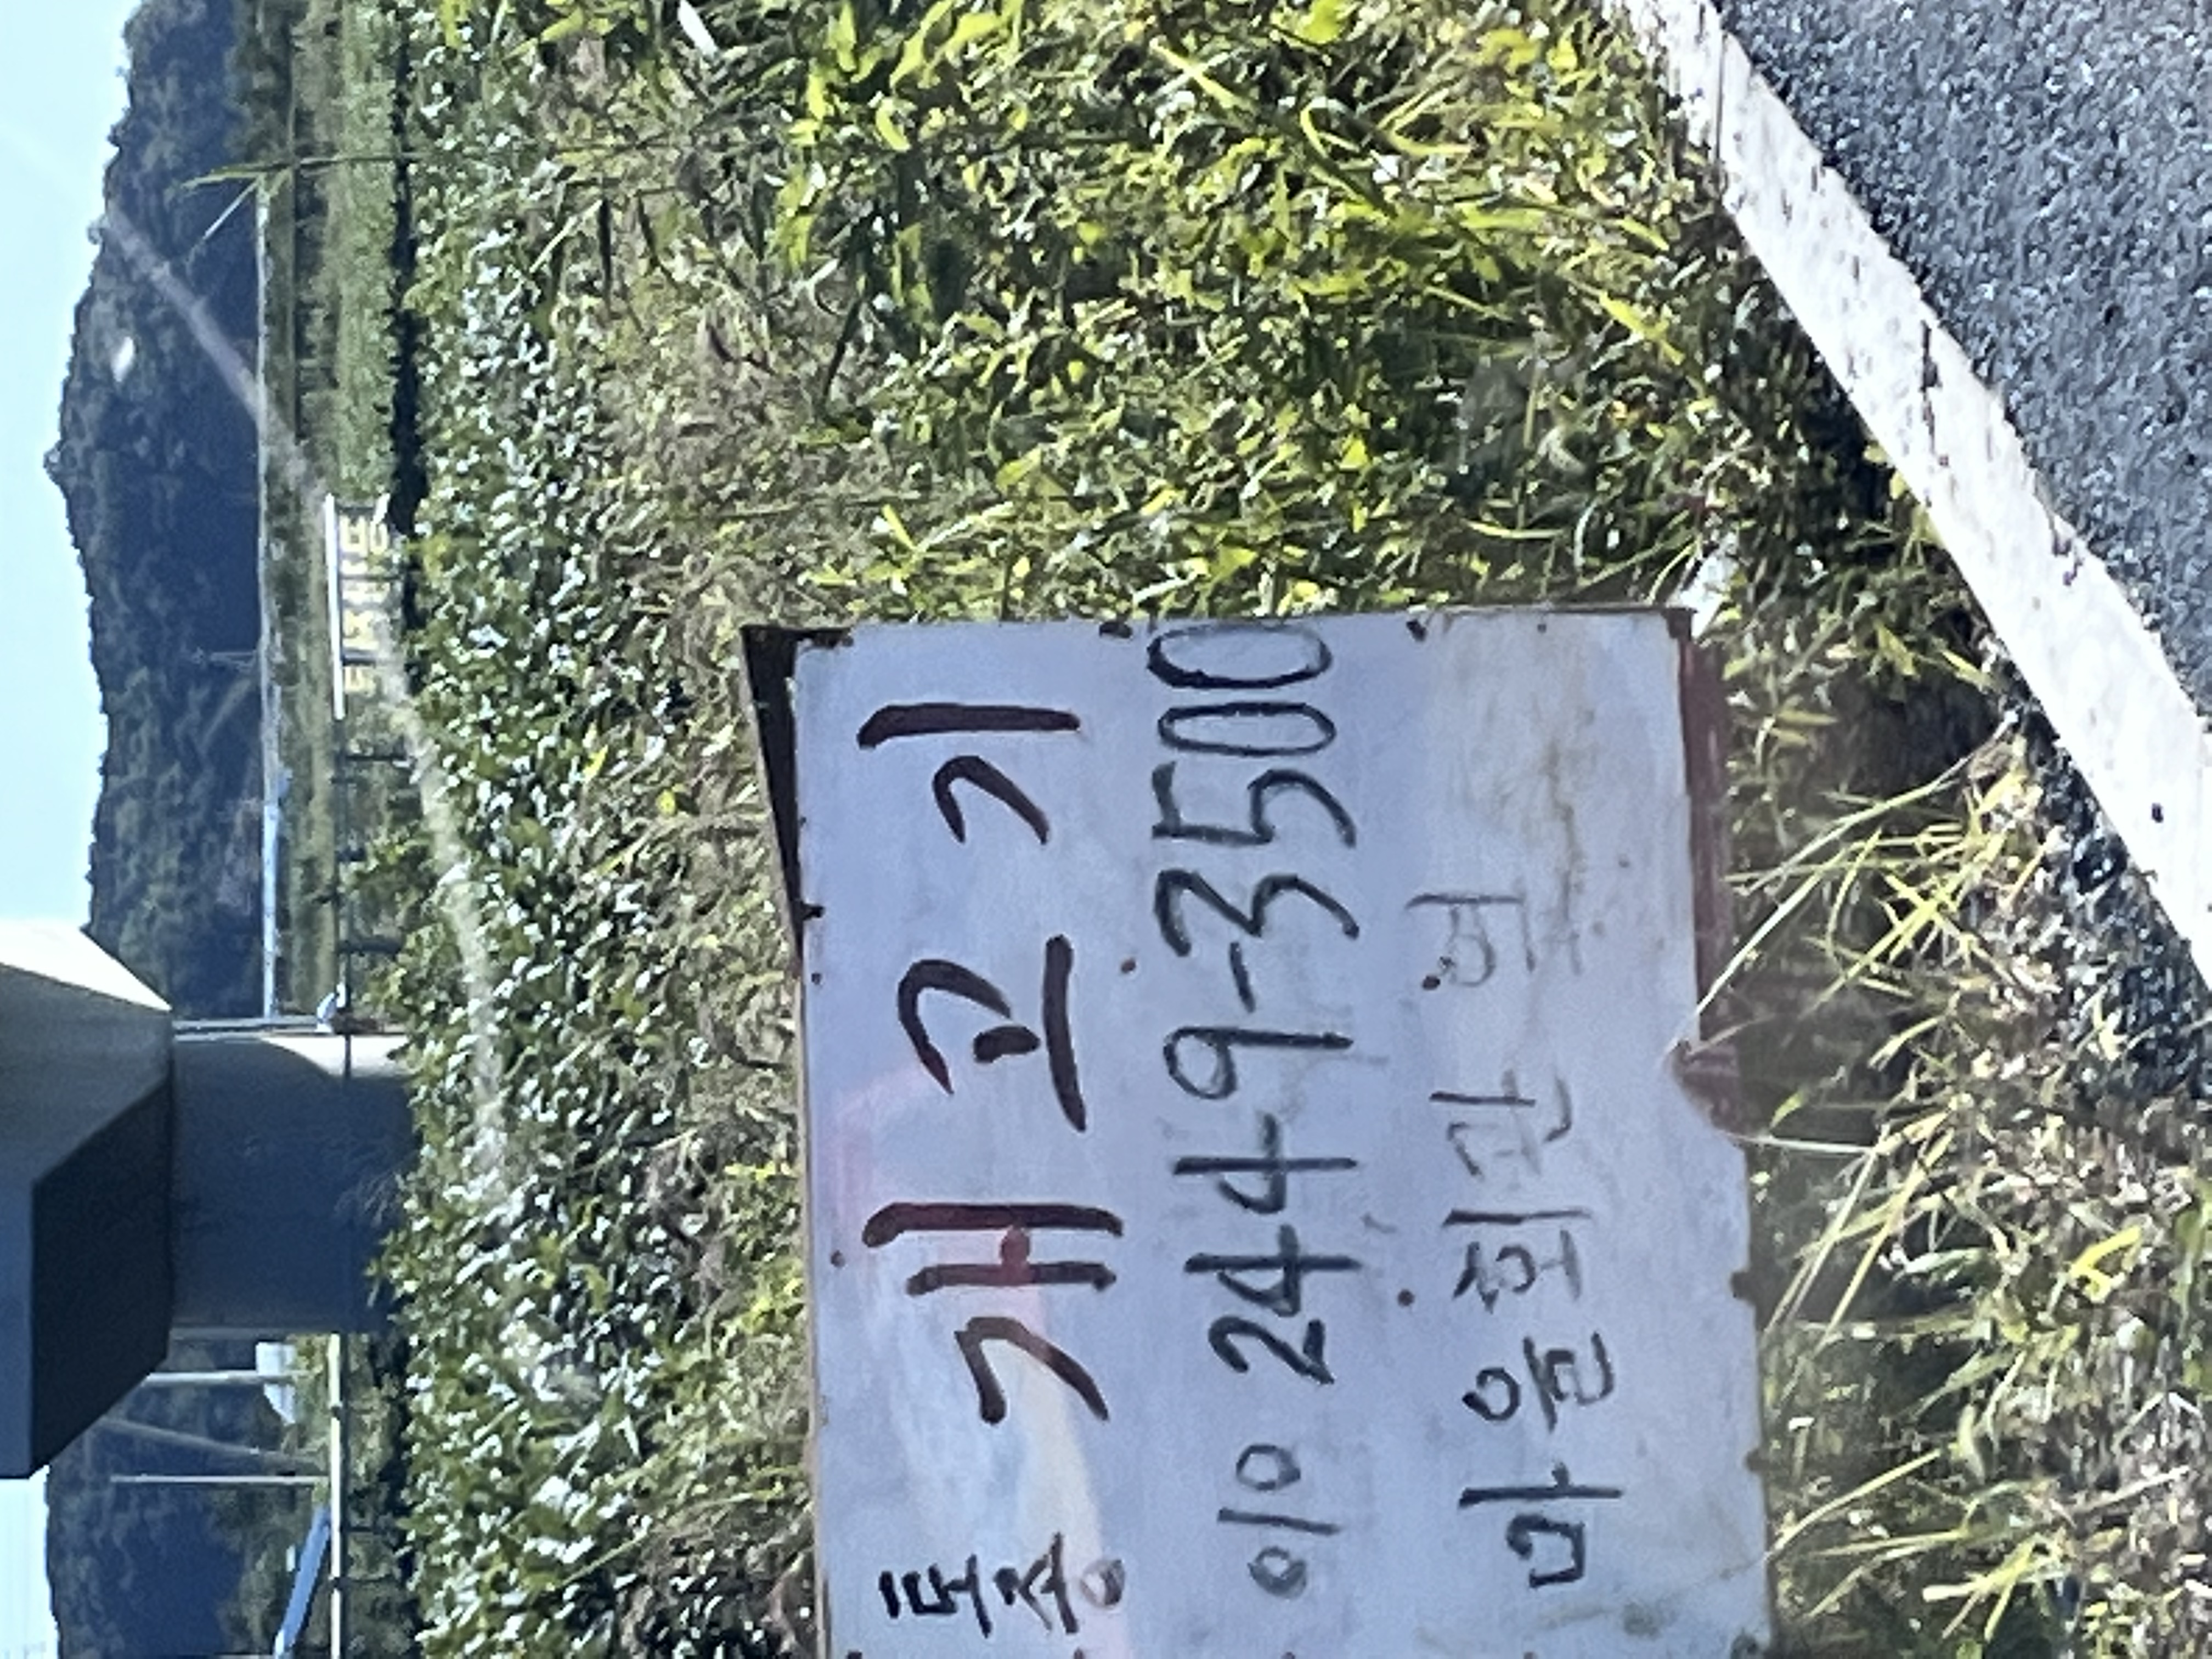 토종 개고기
010 2449-3500
마을회관 옆